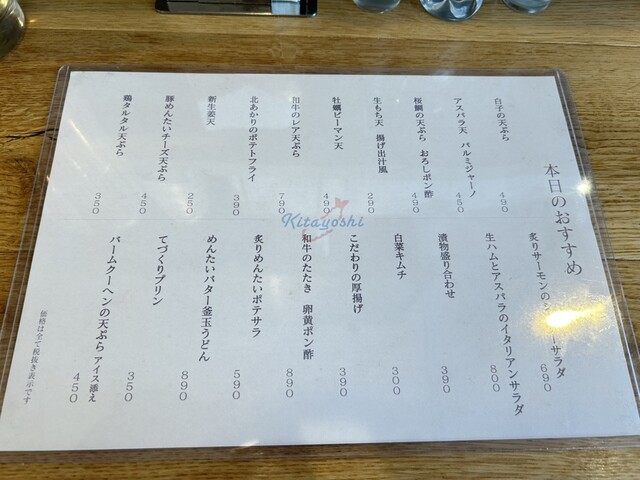 本日のおすすめ
白子の天ぷら 490
アスパラ天 パルミジャーノ 450
桜鯛の天ぷら おろしポン酢 490
生もち天 揚げ出汁風 290
牡蠣ピーマン天 490
和牛のレア天ぷら 790
北あかりのポテトフライ 390
新生姜天 250
豚めんたいチーズ天ぷら 450
鶏タルタル天ぷら 350
Kitayoshi
炙りサーモンの ーサラダ 690
生ハムとアスパラのイタリアンサラダ 800
漬物盛り合わせ 390
白菜キムチ 300
こだわりの厚揚げ 390
和牛のたたき 卵黄ポン酢 890
炙りめんたいポテサラ 590
めんたいバター釜玉うどん 890
てづくりプリン 350
バームクーヘンの天ぷら アイス添え 450
価格は全て税抜き表示です